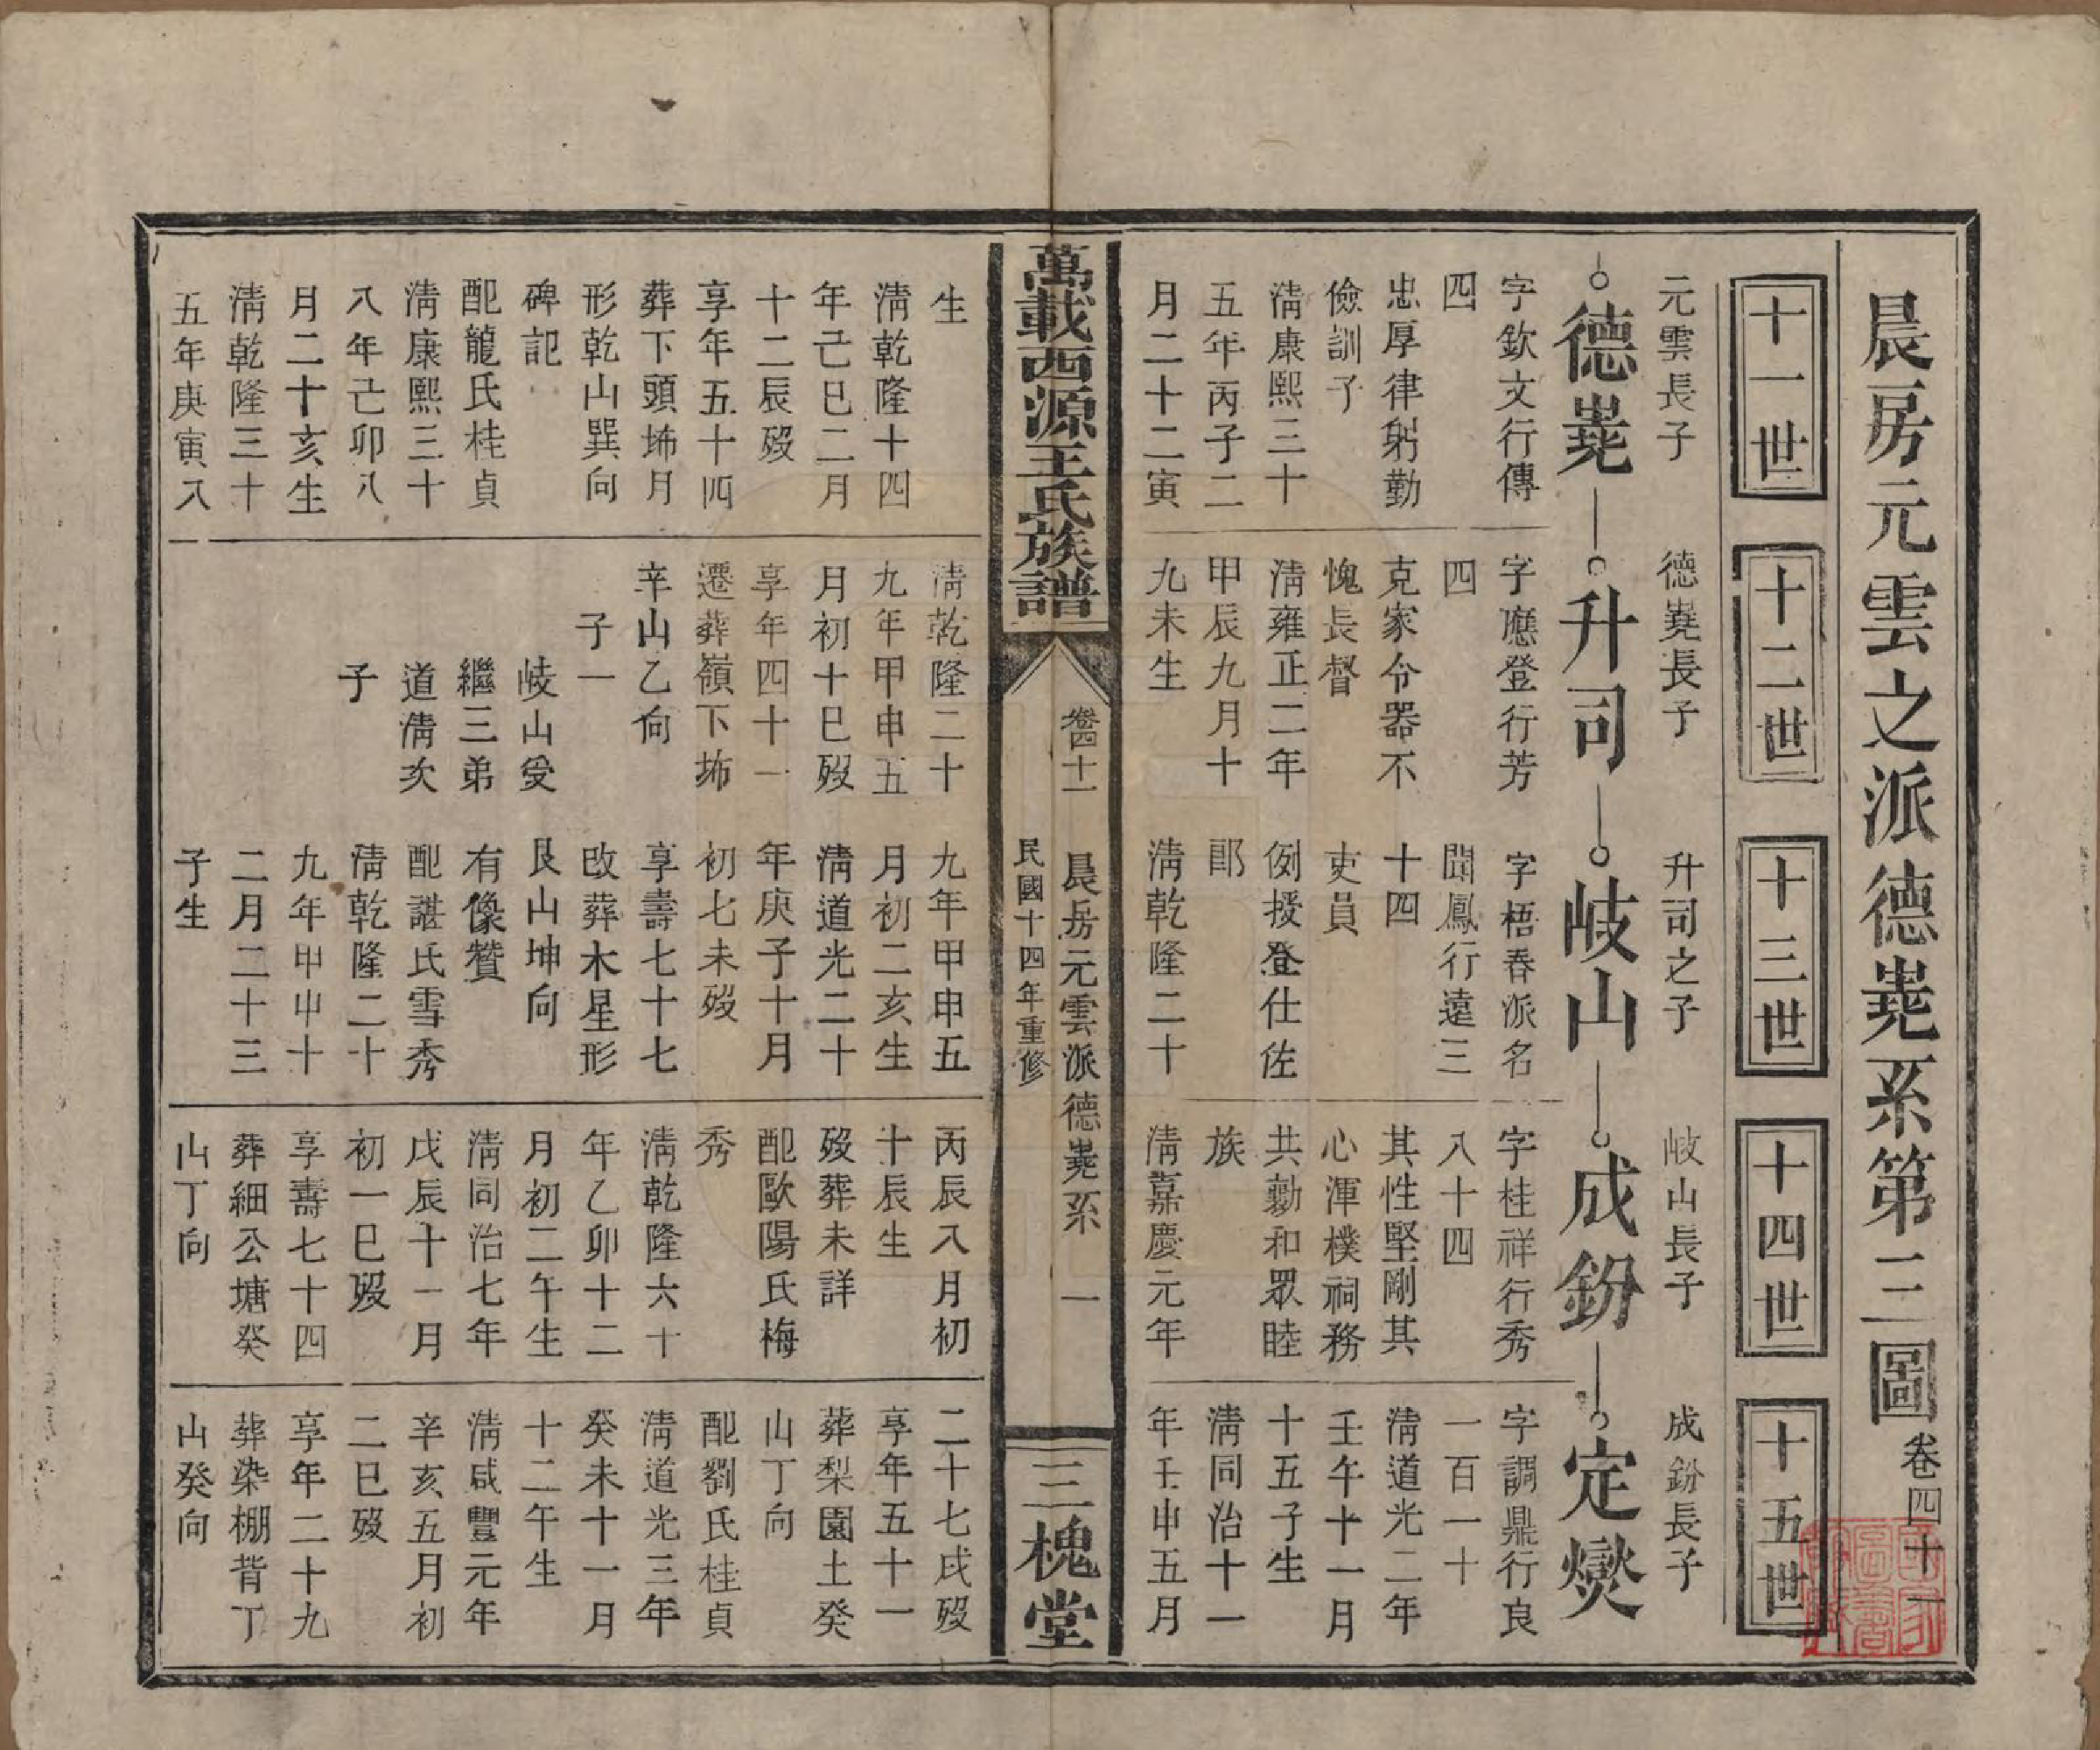 晨房元雲之派德嵬系第三圖卷四十一
十一世
十二世
十三世
十四世
十五世
元雲長子
德嵬
字欽文行傳
四
忠厚律躬勤
儉訓子
淸康熙三十
五年丙子二
月二十二寅
生
淸乾隆十四
年己巳二月
十二辰歿
享年五十四
葬下頭㘵月
形乾山巽向
碑記
配龍氏桂貞
淸康熙三十
八年己卯八
月二十亥生
淸乾隆三十
五年庚寅入
德嵬長子
升司
字應登行芳
四
克家令器不
愧長督
淸雍正二年
甲辰九月十
九未生
淸乾隆二十
九年甲申五
月初十巳歿
享年四十一
遷葬嶺下㘵
辛山乙向
子一
岐山受
繼三弟
道淸次
子
升司之子
岐山
字梧春派名
聞鳳行遠三
十四
吏員
例授登仕佐
郎
淸乾隆二十
九年甲申五
月初二亥生
淸道光二十
年庚子十月
初七未歿
享壽七十七
改葬木星形
艮山坤向
有像贊
配諶氏雪秀
淸乾隆二十
九年甲申十
二月二十三
子生
岐山長子
成鈖
字桂祥行秀
八十四
其性堅剛其
心渾樸祠務
共勷和眾睦
族
淸嘉慶元年
丙辰入月初
十辰生
歿葬未詳
配歐陽氏梅
秀
淸乾隆六十
年乙卯十二
月初二午生
淸同治七年
戊辰十一月
初一巳歿
享壽七十四
葬細公塘癸
山丁向
成鈖長子
定燮
字調鼎行良
一百一十
淸道光二年
壬午十一月
十五子生
淸同治十一
年壬申五月
二十七戌歿
享年五十一
葬梨園土癸
山丁向
配劉氏桂貞
淸道光三年
癸未十一月
十二午生
淸咸豐元年
辛亥五月初
二巳歿
享年二十九
葬染棚背丁
山癸向
萬載西源王氏族譜
卷四十一
晨房元雲派德嵬系
一
民國十四年重修
三槐堂